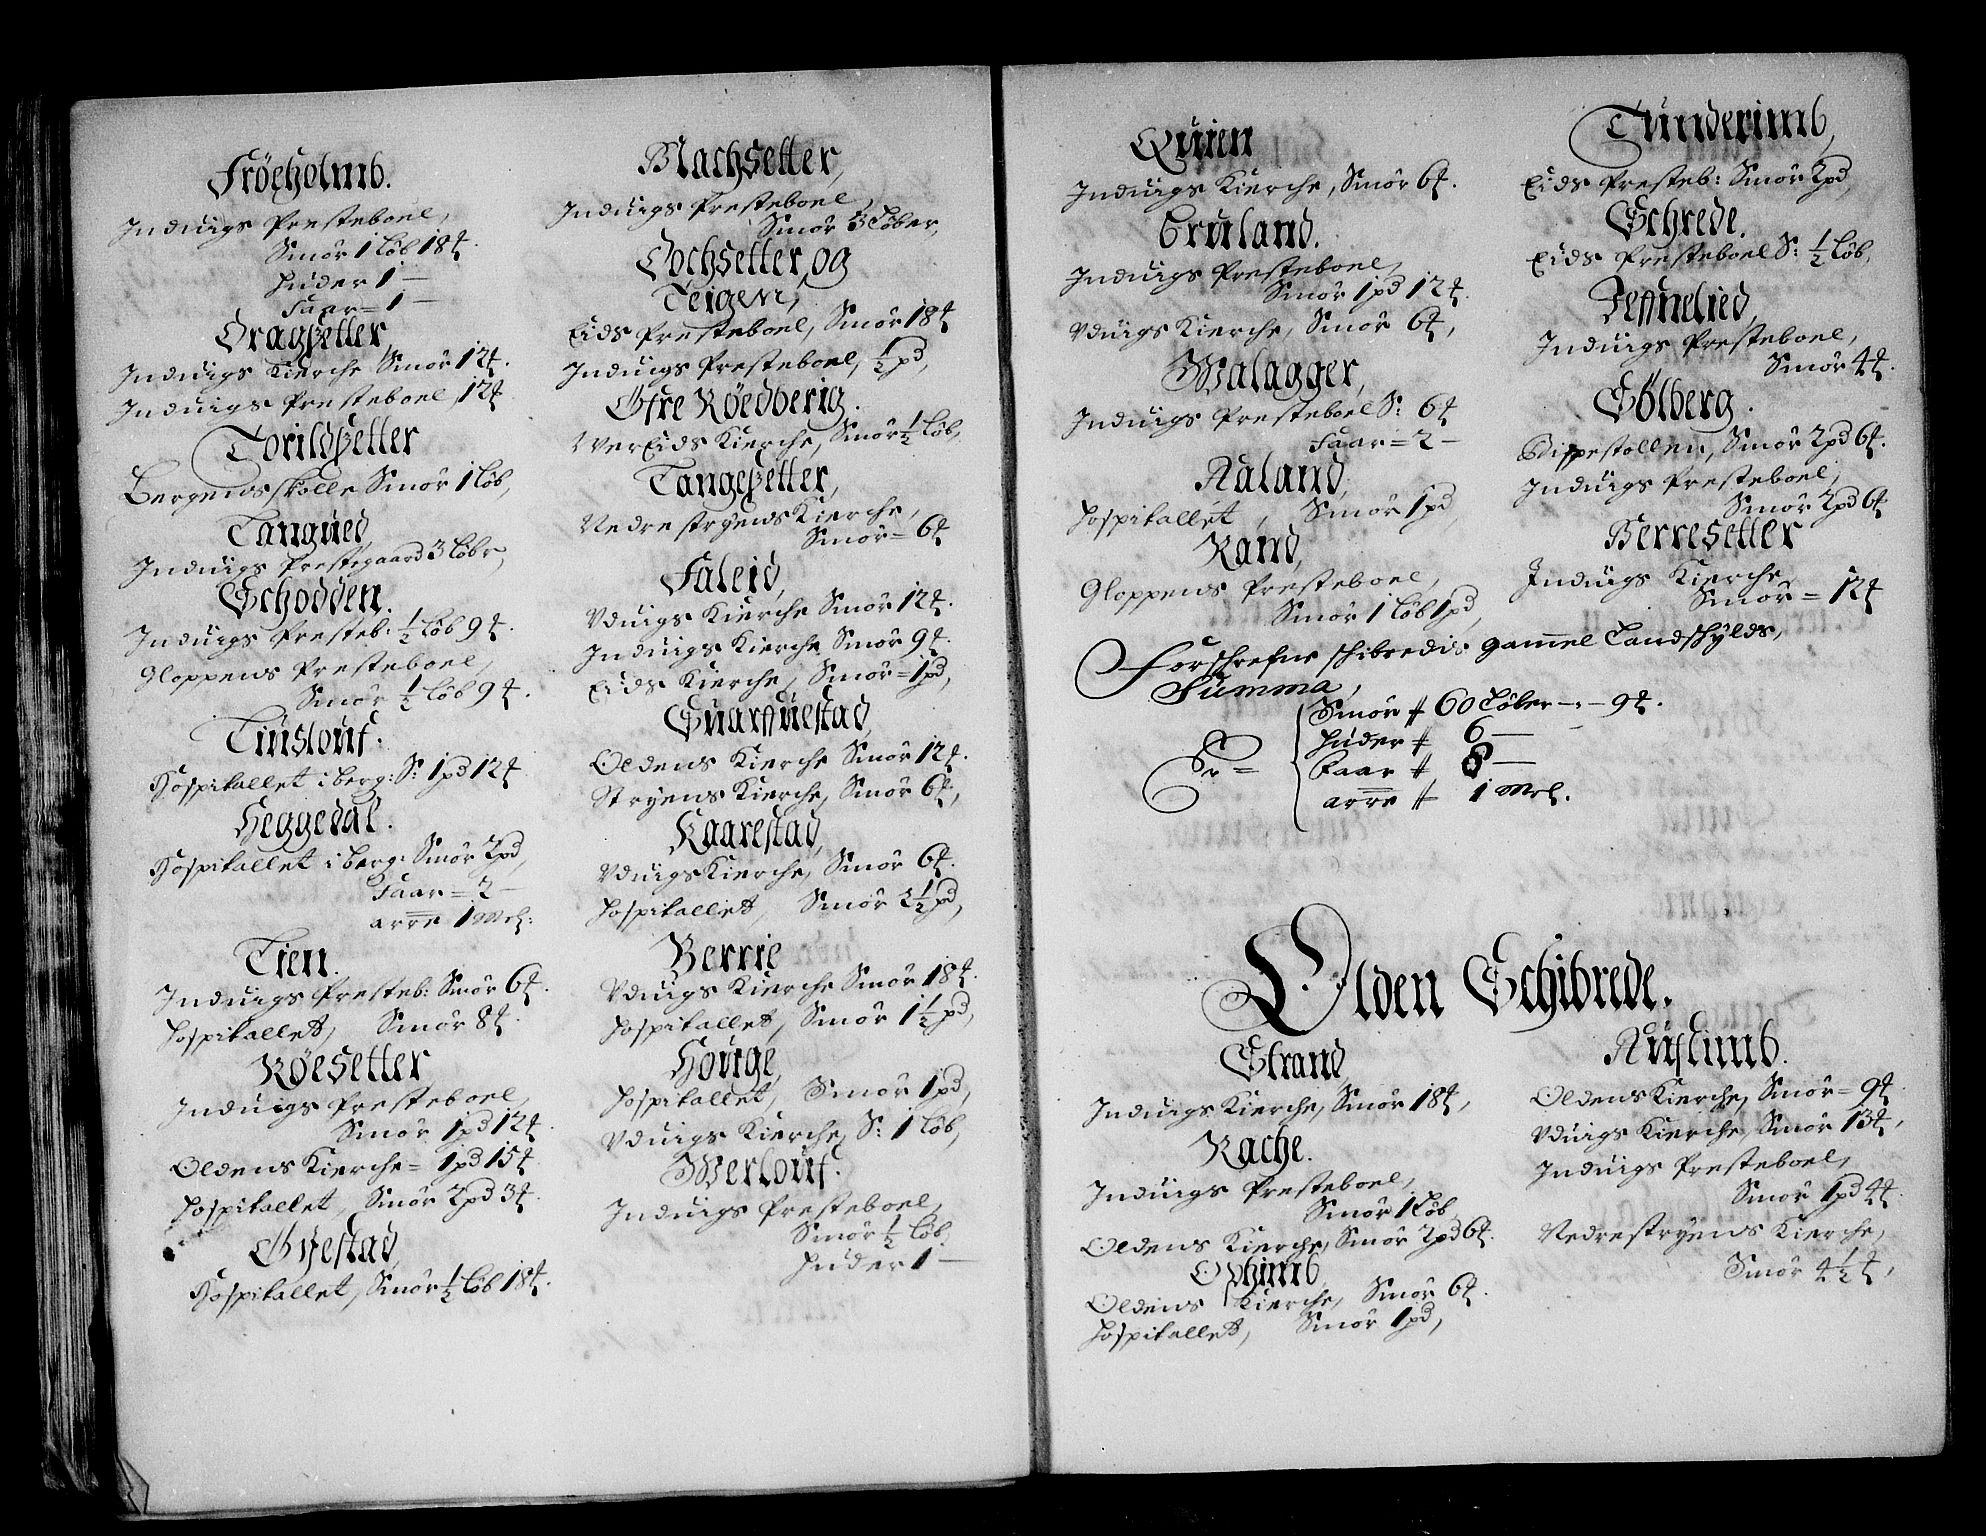 Fröeholmb.
Induigs Presteboel,
Smör 1 Löb 18 ℔.
Huder 1 —
Faar = 1 —
Dragsetter,
Induigs Kierche Smör 12 ℔.
Induigs Presteboel, 12 ℔
Torildsetter
Bergens skolle Smör 1 Löb,
Tangued,
Induigs Prestegaard 3 Löbr,
Schodden.
Induigs Presteb: ½ Löb 9 ℔.
Gloppens Presteboel,
Smör ½ Löb 9 ℔.
Tinglouf.
Hospitallet i berg: S: 1 pd 12 ℔
Heggedal.
Hospitallet i berg: Smör 2 pd,
Faar = 2 —
arre 1 Mel:
Tien.
Induigs Presteb: Smör 6 ℔.
Hospitallet, Smör 8 ℔.
Röesetter
Induigs Presteboel,
Smör 1 pd 12 ℔.
Oldens Kierche = 1 pd 15 ℔
Hospitallet, Smör 2 pd 3 ℔.
Hospitallet, Smör ½ Löb 18 ℔.
Machsetter,
Induigs Presteboel,
Smör 3 Löber,
Lochsetter, og
Teigen,
Eids Presteboel, Smör 18 ℔
Induigs Presteboel, ½ pd,
Ofre Röedberig.
Vereids Kierche, Smör ½ Löb,
Tangesetter,
Nedre stryens Kierche,
Smör = 6 ℔
Faleid,
Vduigs Kierche Smör 12 ℔.
Induigs Kierche Smör 9 ℔.
Eids Kierche, Smör = 1 pd,
Guarffuestad,
Oldens Kierche Smör 12 ℔.
Stryens Kierche, Smör 6 ℔,
Kaarestad,
Vduigs Kierche, Smör 6 ℔.
Hospitallet, Smör 2½ pd,
Berrie
Vduigs Kierche Smör 18 ℔.
Hospitallet, Smör 1½ pd,
Houge,
Hospitallet, Smör 1 pd,
Vduigs Kierche, S: 1 Löb,
Merlouf.
Induigs Presteboel,
Smör ½ Löb,
Huder 1 —
Quien
Induigs Kierche, Smör 6 ℔.
Bruland.
Induigs Presteboel,
Smör 1 pd 12 ℔.
Vduigs Kierche, Smör 6 ℔,
Walagger,
Induigs Presteboel S: 6 ℔
Faar = 2 —
Raland,
Hospitallet, Smör 1 pd,
Rand,
Gloppens Presteboel,
Smör 1 Löb 1 pd,
Tunderimb,
Eids Presteb: Smör 2 pd,
Schrede.
Eids Presteboel S: ½ Löb,
Induigs Presteboel,
Smör 4 ℔.
Sölberg.
Bispestollen, Smör 2 pd 6 ℔.
Induigs Presteboel,
Smör 2 pd 6 ℔
Berresetter
Induigs Kierche,
Smör = 12 ℔
Forschrefne schibredis gammel Landschylds,
Summa,
Er =
Smör # 60 Löber — : — 9 ℔.
Huder # 6 —
Faar # 8 —
arre # 1 Mel.
Olden Schibrede.
Strand,
Induigs Kierche, Smör 18 ℔,
Rache.
Induigs Presteboel,
Smör 1 Löb,
Oldens Kierche, Smör 2 pd 6 ℔.
Oldens Kierche, Smör 6 ℔.
Hospitallet, Smör 1 pd,
Oldens Kierche, Smör = 9 ℔.
Vduigs Kierche, Smör 13 ℔,
Induigs Presteboel,
Smör 1 pd 4 ℔.
Nedrestryens Kierche,
Smör 4½ ℔,